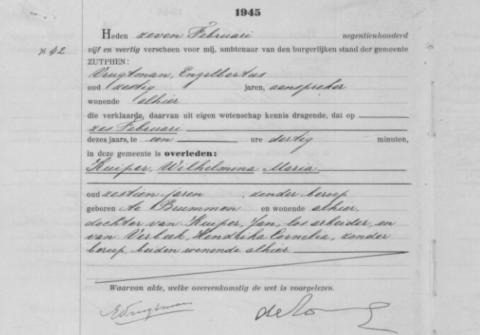 1945
Heden zeven Februari negentienhonderd
No 42 vijf en veertig verscheen voor mij, ambtenaar van den burgerlijken stand der gemeente
ZUTPHEN:
Vrugtman, Engelbertus
oud zestig jaren, aanspreker
wonende alhier
die verklaarde, daarvan uit eigen wetenschap kennis dragende, dat op
zes Februari
dezes jaars, te een ure dertig minuten,
in deze gemeente is overleden:
Kuiper, Wilhelmina Maria
oud zestien jaren, zonder beroep
geboren te Brummen en wonende alhier,
dochter van Kuiper, Jan, los arbeider, en
van Verbeek, Hendrika Cornelia, zonder
beroep, beiden wonende alhier
Waarvan akte, welke overeenkomstig de wet is voorgelezen.
EVrugtman